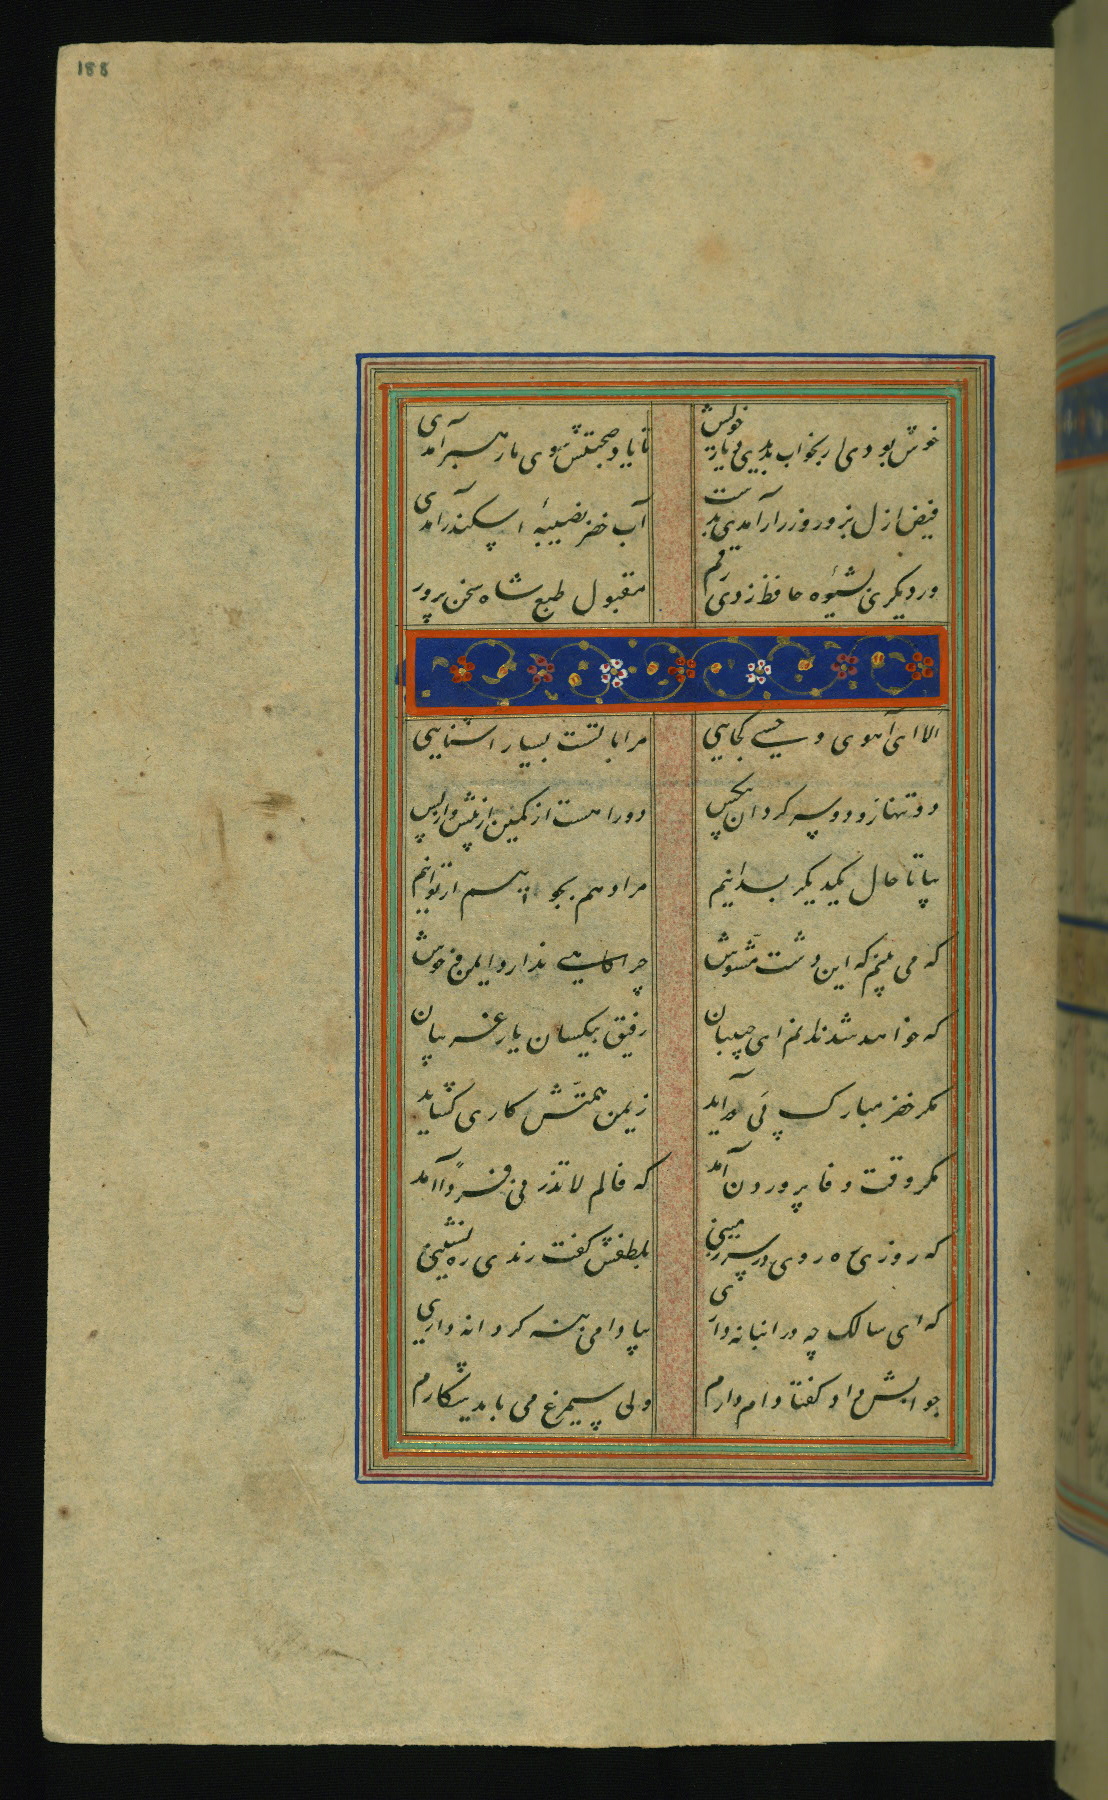 188
خوش بودی ار بخواب بدیدی دیار خویش
تا یاد صحبتش سوی ما رهبر آمدی
فیض ازل بزور و زر ار آمدی بدست
آب خضر نصیبهٔ اسکندر آمدی
ور دیکری بشیوهٔ حافظ زدی رقم
مقبول طبع شاه سخن پرور
الا ای آهوی وحشی کجایی
مرا با تست بسیار اشنایی
دو تنها و دو سرکردان بیکس
دو راهست از کمین از پیش و از پس
بیا تا حال یکدیکر بدانیم
مراد هم بجوییم ار توانیم
که می بینم که این دشت مشوش
چراکاهی ندارد ایمن و خوش
که خواهد شد ای حبیبان
رفیق بیکسان یار غریبان
مکر خضر مبارک پی درآید
ز یمن همتش کاری کشاید
مکر وقت وفا پروردن آمد
که فالم لا تذرنی فرداً آمد
که روزی ره روی در سرزمینی
بلطفش کفت رندی ره نشینی
که ای سالک چه در انبانه داری
بیا دامی بنه کر دانه داری
جوابش داد کفتا دام دارم
ولی سیمرغ می باید شکارم